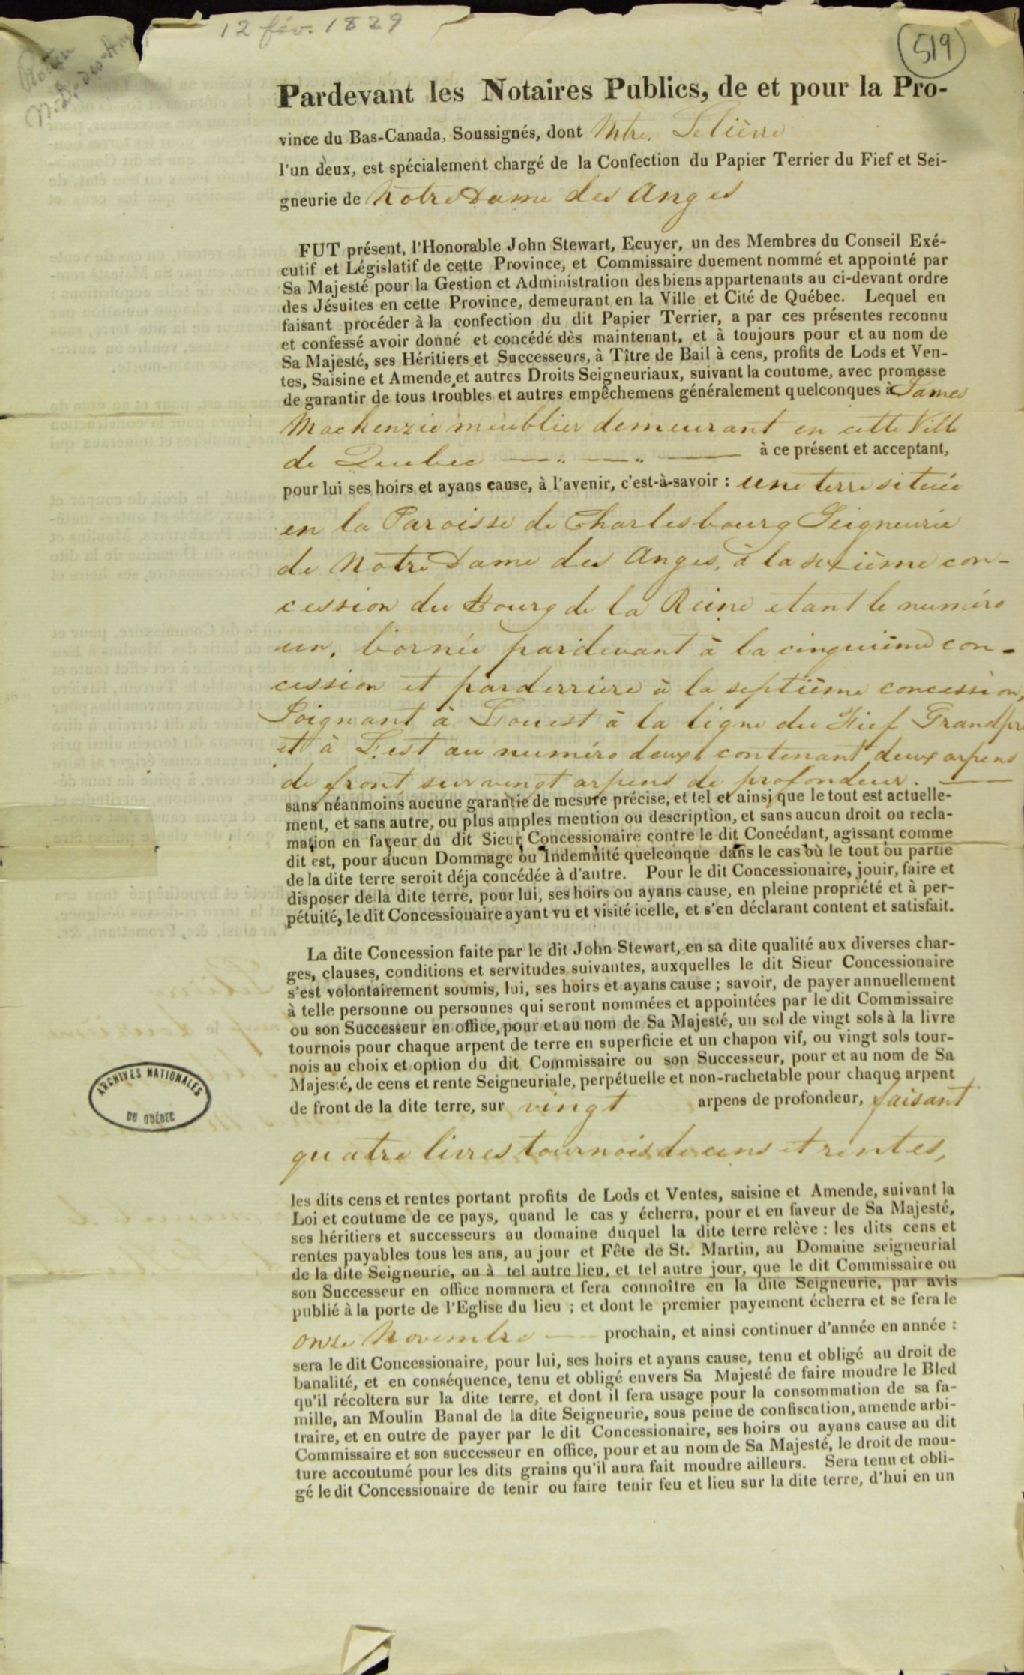 12 fév. 1829
519
N. D. des
Pardevant les Notaires Publics, de et pour la Pro-
vince du Bas-Canada, Soussignés, dont Mtre. Lelièvre
l'un deux, est spécialement chargé de la Confection du Papier Terrier du Fief et Sei-
gneurie de Notre Dame des Anges
FUT présent, l'Honorable John Stewart, Ecuyer, un des Membres du Conseil Exé-
cutif et Législatif de cette Province, et Commissaire duement nommé et appointé par
Sa Majesté pour la Gestion et Administration des biens appartenants au ci-devant ordre
des Jésuites en cette Province, demeurant en la Ville et Cité de Québec. Lequel en
faisant procéder à la confection du dit Papier Terrier, a par ces présentes reconnu
et confessé avoir donné et concédé dès maintenant, et à toujours pour et au nom de
Sa Majesté, ses Héritiers et Successeurs, à Tître de Bail à cens, profits de Lods et Ven-
tes, Saisine et Amende et autres Droits Seigneuriaux, suivant la coutume, avec promesse
de garantir de tous troubles et autres empêchemens généralement quelconques à James
Mackenzie meublier demeurant en cette Ville
de Quebec — " — " — à ce présent et acceptant,
pour lui ses hoirs et ayans cause, à l'avenir, c'est-à-savoir : une terre située
en la Paroisse de Charlesbourg Seigneurie
de Notre Dame des Anges, à la sixième con-
cession du Bourg de la Reine etant le numéro
un, bornée pardevant à la cinquième con-
cession et parderriere à la septième concession,
Joignant à L'ouest à la ligne du Fief Grandpré
et à L'est au numéro deux, contenant deux arpens
de front sur vingt arpens de profondeur. —
sans néanmoins aucune garantie de mesure précise, et tel et ainsi que le tout est actuelle-
ment, et sans autre, ou plus amples mention ou description, et sans aucun droit ou recla-
mation en faveur du dit Sieur Concessionaire contre le dit Concédant, agissant comme
dit est, pour aucun Dommage ou Indemnité quelconque dans le cas où le tout ou partie
de la dite terre seroit déja concédée à d'autre. Pour le dit Concessionaire, jouir, faire et
disposer de la dite terre, pour lui, ses hoirs ou ayans cause, en pleine propriété et à per-
pétuité, le dit Concessionaire ayant vu et visité icelle, et s'en déclarant content et satisfait.
La dite Concession faite par le dit John Stewart, en sa dite qualité aux diverses char-
ges, clauses, conditions et servitudes suivantes, auxquelles le dit Sieur Concessionaire
s'est volontairement soumis, lui, ses hoirs et ayans cause ; savoir, de payer annuellement
à telle personne ou personnes qui seront nommées et appointées par le dit Commissaire
ou son Successeur en office, pour et au nom de Sa Majesté, un sol de vingt sols à la livre
tournois pour chaque arpent de terre en superficie et un chapon vif, ou vingt sols tour-
nois au choix et option du dit Commissaire ou son Successeur, pour et au nom de Sa
Majesté, de cens et rente Seigneuriale, perpétuelle et non-rachetable pour chaque arpent
de front de la dite terre, sur vingt arpens de profondeur, faisant
quatre livres tournois de cens et rentes,
les dits cens et rentes portant profits de Lods et Ventes, saisine et Amende, suivant la
Loi et coutume de ce pays, quand le cas y écherra, pour et en faveur de Sa Majesté,
ses héritiers et successeurs au domaine duquel la dite terre relève : les dits cens et
rentes payables tous les ans, au jour et Fête de St. Martin, au Domaine seigneurial
de la dite Seigneurie, ou à tel autre lieu, et tel autre jour, que le dit Commissaire ou
son Successeur en office nommera et fera connoître en la dite Seigneurie, par avis
publié à la porte de l'Eglise du lieu ; et dont le premier payement écherra et se fera le
onze Novembre — prochain, et ainsi continuer d'année en année :
sera le dit Concessionaire, pour lui, ses hoirs et ayans cause, tenu et obligé au droit de
banalité, et en conséquence, tenu et obligé envers Sa Majesté de faire moudre le Bled
qu'il récoltera sur la dite terre, et dont il fera usage pour la consommation de sa fa-
mille, an Moulin Banal de la dite Seigneurie, sous peine de confiscation, amende arbi-
traire, et en outre de payer par le dit Concessionaire, ses hoirs ou ayans cause au dit
Commissaire et son successeur en office, pour et au nom de Sa Majesté, le droit de mou-
ture accoutumé pour les dits grains qu'il aura fait moudre ailleurs. Sera tenu et obli-
gé le dit Concessionaire de tenir ou faire tenir feu et lieu sur la dite terre, d'hui en un
ARCHIVES NATIONALES
DU QUÉBEC